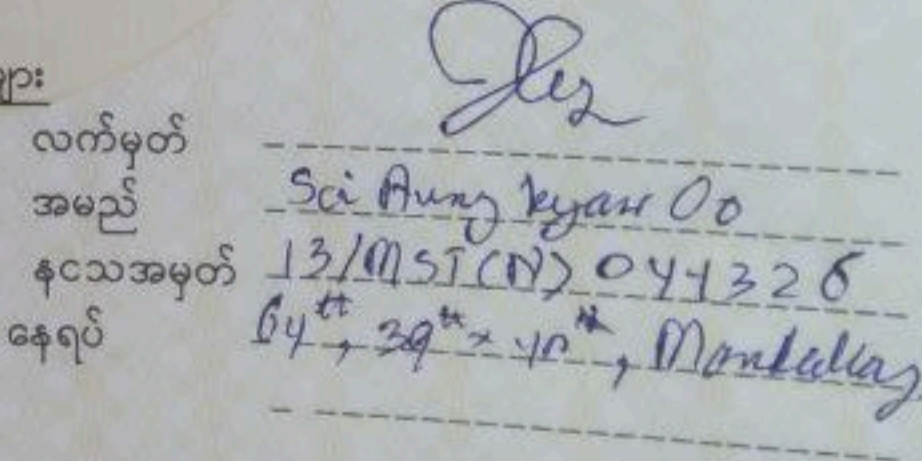 များ
လက်မှတ်
အမည် Sai Aung kyaw Oo
နငသအမှတ် 13/MST(N) 044326
နေရပ် 64th, 39th × 40th, Mandalay